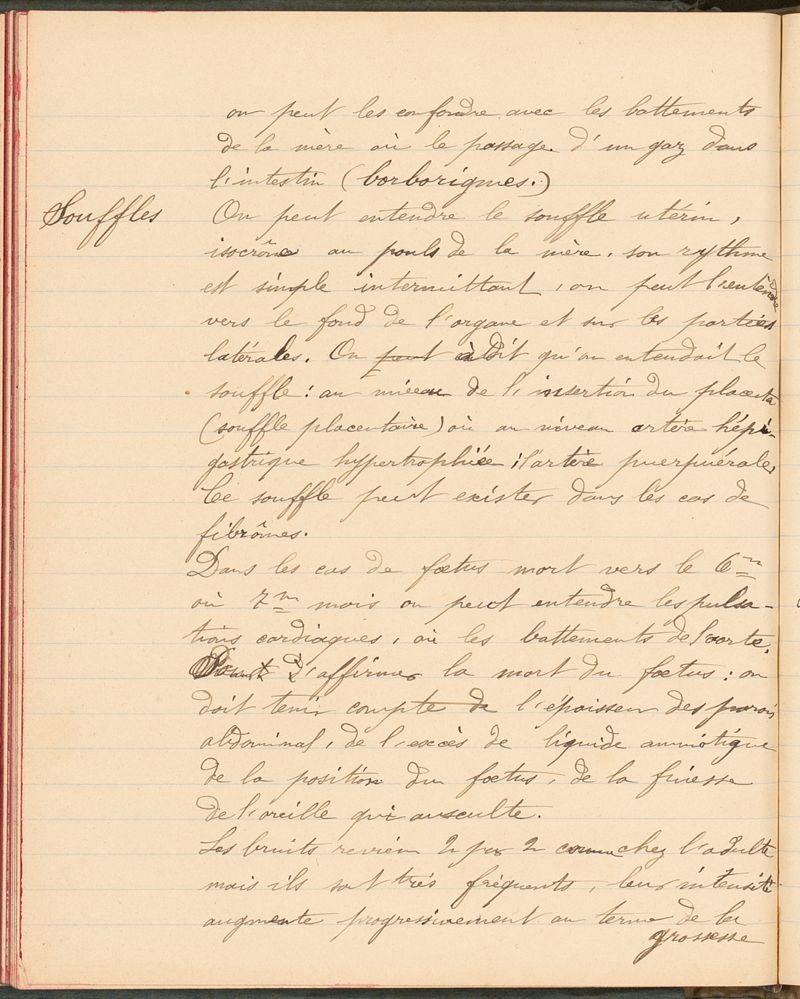 on peut les confondre avec les battements
de la mère où le passage d'un gaz dans
l'intestin (borborigmes.)
Souffles
On peut entendre le souffle utérin,
isocrône au pouls de la mère, son rythme
est simple intermittant, on peut l'entendre
vers le fond de l'organe et sur les parties
latérales. On peut a dit qu'on entendait le
souffle : au niveau de l'insertion du placenta
(souffle placentaire) où au niveau artère hépi-
gastrique hypertrophiée ; l'artère puerpuérale,
Ce souffle peut exister dans les cas de
fibrômes.
Dans les cas de fœtus mort vers le 6me
où 7me mois on peut entendre les pulsa-
tions cardiaques, où les battements de l'aorte.
d'affirmer la mort du fœtus : on
doit tenir compte de l'épaisseur des parois
abdominal, de l'excès de liquide amniotique
de la position du fœtus, de la finesse
de l'oreille qui ausculte.
Les bruits revien 2 par 2 comme chez l'adulte
mais ils sont très fréquents, leur intensité
augmente progressivement au terme de la
grossesse